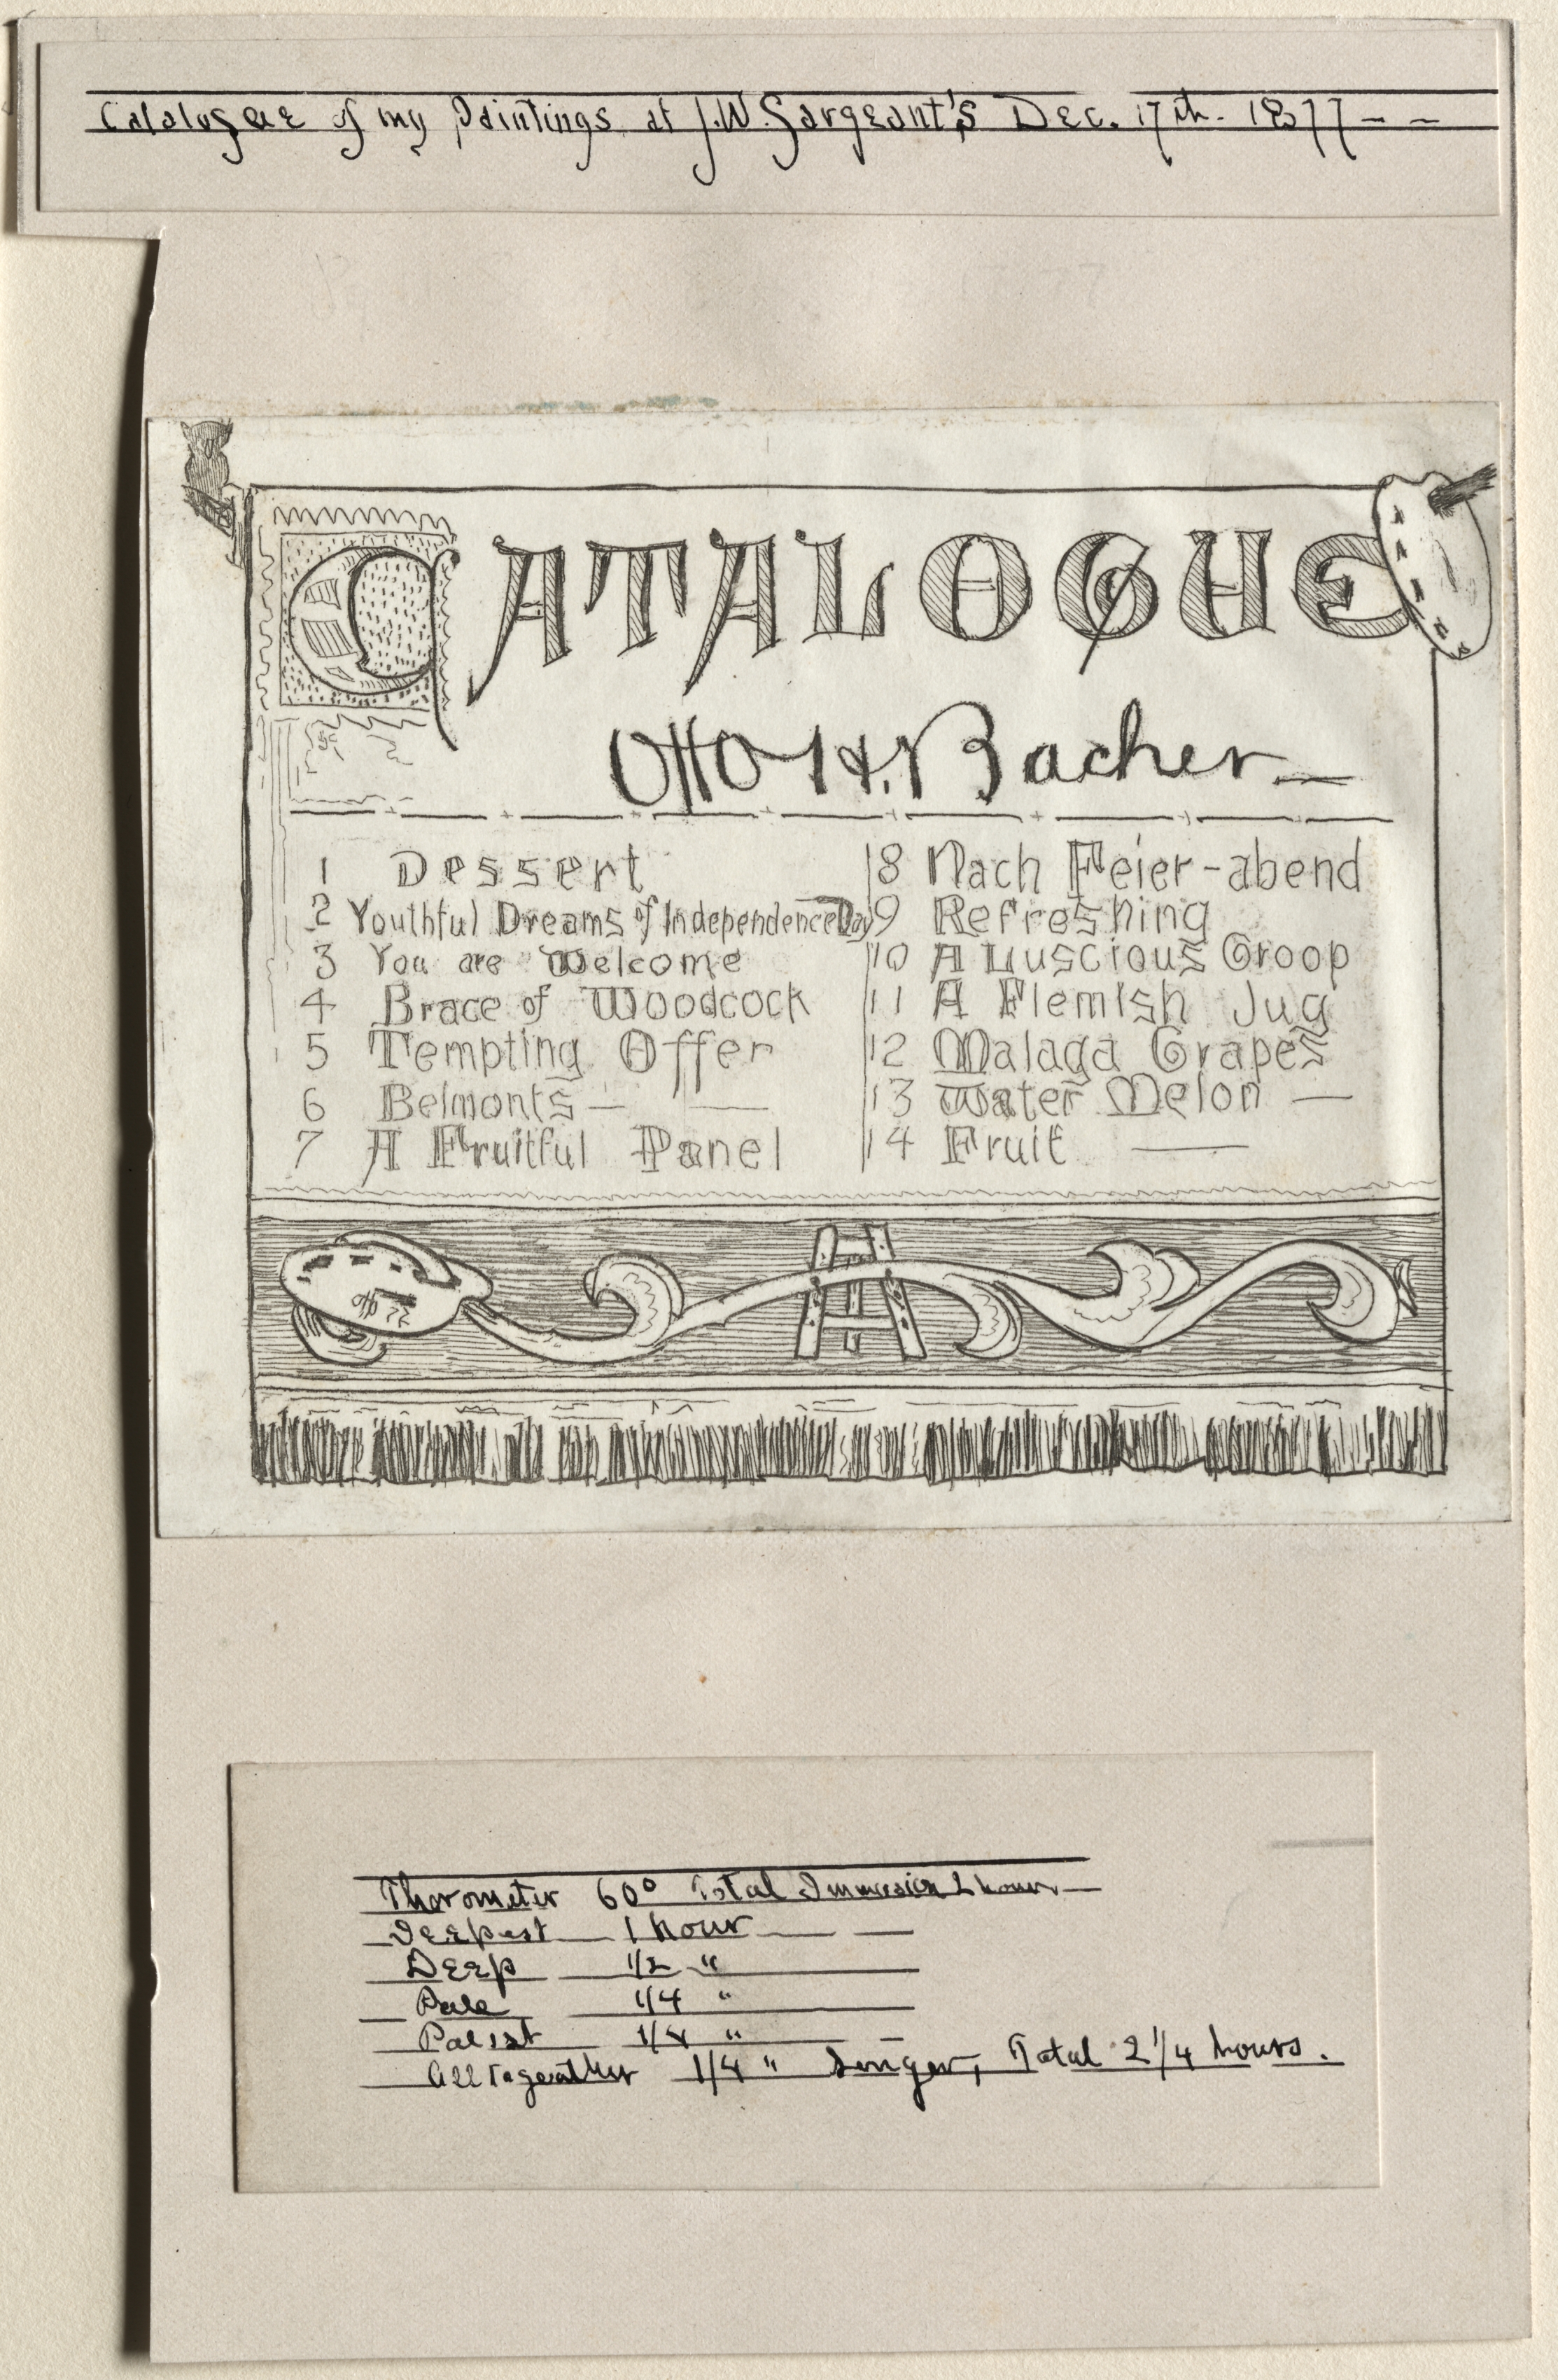 Catalogue of my Paintings at J.W. Sargeant's Dec. 17th. 1877 - -
CATALOGUE
Otto H. Bacher
1 Dessert
2 Youthful Dreams of Independence Day
3 You are Welcome
4 Brace of Woodcock
5 Tempting Offer
6 Belmonts
7 A Fruitful Panel
8 Nach Feier-abend
9 Refreshing
10 A Luscious Groop
11 A Flemish Jug
12 Malaga Grapes
13 Water Melon
14 Fruit
Thorometer 60° Total Immersion 2 hours
Deepest 1 hour
Deep 1/2 "
Pale 1/4 "
Palest 1/8 "
All togeather 1/4 " longer, Total 2 1/4 hours.